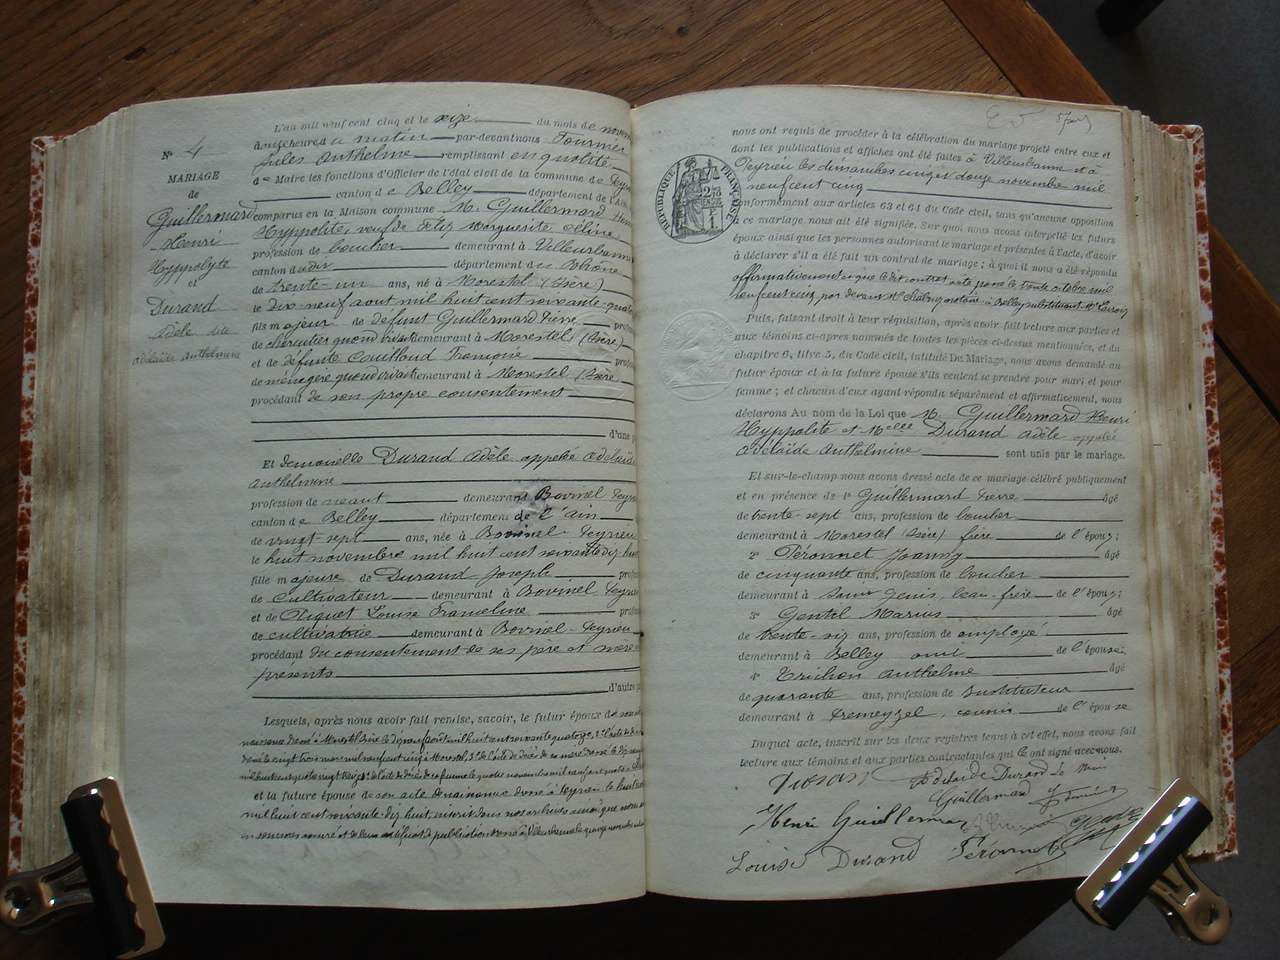 N° 4
MARIAGE
de
Guillermard
Henri
Hyppolyte
et
Durand
Adèle dite
Adélaïde Anthelmine
L'an mil neuf cent cinq et le seize du mois de novem
à onze heures du matin par-devant nous Fournier
Jules Anthelme remplissant en qualité
de Maire les fonctions d'Officier de l'état civil de la commune de Peyr
canton de Belley département de l'Ain
comparus en la Maison commune M. Guillermard Hen
Hyppolite, veuf de Felix Marguerite Céline
profession de boucher demeurant à Villeurbanne
canton dudit département du Rhône
de trente-un ans, né à Morestel (Isère)
le dix-neuf août mil huit cent soixante-quato
fils majeur de défunt Guillermard Pierre profe
de charcutier quand vivait demeurant à Morestel (Isère)
et de défunte Couilloud Françoise profe
de ménagère quand vivait demeurant à Morestel (Isère)
procédant de son propre consentement
d'une p
Et demoiselle Durand Adèle appelée Adélaïde
Anthelmine
profession de néant demeurant Bovinel-Peyr
canton de Belley département de l'Ain
de vingt-sept ans, née à Bovinel-Peyrieu
le huit novembre mil huit cent soixante dix huit
fille majeure de Durand Joseph profe
de cultivateur demeurant à Bovinel Peyr
et de Louise Frameline profe
de cultivatrice demeurant à Bovinel-Peyrieu
procédant du consentement de ses père et mère
présents
d'autre p
Lesquels, après nous avoir fait remise, savoir, le futur époux de son acte
naissance dressé à Morestel Isère le dix neuf août mil huit cent soixante quatorze, 2° l'acte de
le vingt trois mars mil neuf cent cinq à Morestel, 3° de l'acte de décès de sa mère dressé le
mil huit cent quatre vingt treize, l'acte de décès de sa femme le quatre novembre mil neuf cent quatre
et la future épouse de son acte de naissance dressé à Peyrieu le huit
mil huit cent soixante dix huit, inscrit dans nos archives ainsi que nous
et de leur certificat de publication dressé à Villeurbanne le quinze novembre
nous ont requis de procéder à la célébration du mariage projeté entre eux et
dont les publications et affiches ont été faites à Villeurbanne et à
Peyrieu les dimanches cinq et douze novembre mil
neuf cent cinq
conformément aux articles 63 et 64 du Code civil, sans qu'aucune opposition
à ce mariage, nous ait été signifiée. Sur quoi nous avons interpellé les futurs
époux ainsi que les personnes autorisant le mariage et présentes à l'acte, d'avoir
à déclarer s'il a été fait un contrat de mariage ; à quoi il nous a été répondu
affirmativement et que le dit contrat a été passé le trente octobre mil
neuf cent cinq, par devant Me notaire à Belley substituant Me
Puis, faisant droit à leur réquisition, après avoir fait lecture aux parties et
aux témoins ci-après nommés de toutes les pièces ci-dessus mentionnées, et du
chapitre 6, titre 5, du Code civil, intitulé Du Mariage, nous avons demandé au
futur époux et à la future épouse s'ils veulent se prendre pour mari et pour
femme ; et chacun d'eux ayant répondu séparément et affirmativement, nous
déclarons Au nom de la Loi que M. Guillermard Henri
Hyppolite et Melle Durand Adèle appelée
Adélaïde Anthelmine sont unis par le mariage.
Et sur-le-champ nous avons dressé acte de ce mariage célébré publiquement
et en présence de 1° Guillermard Pierre âgé
de trente-sept ans, profession de boucher
demeurant à Morestel (Isère) frère de l'époux;
2° Péronnet Joanny âgé
de cinquante ans, profession de boucher
demeurant à Saint Genis, beau-frère de l'époux;
3° Gentel Marius âgé
de trente-six ans, profession de employé
demeurant à Belley ami de l'épouse;
4° Trichon Anthelme âgé
de quarante ans, profession de instituteur
demeurant à Premeyzel, cousin de l'épouse
Duquel acte, inscrit sur les deux registres tenus à cet effet, nous avons fait
lecture aux témoins et aux parties contractantes qui ont signé avec nous.
RÉPUBLIQUE FRANÇAISE
Durand Adélaïde Durand Le Maire
Guillermard
Henri Guillermard
Louise Durand Péronnet